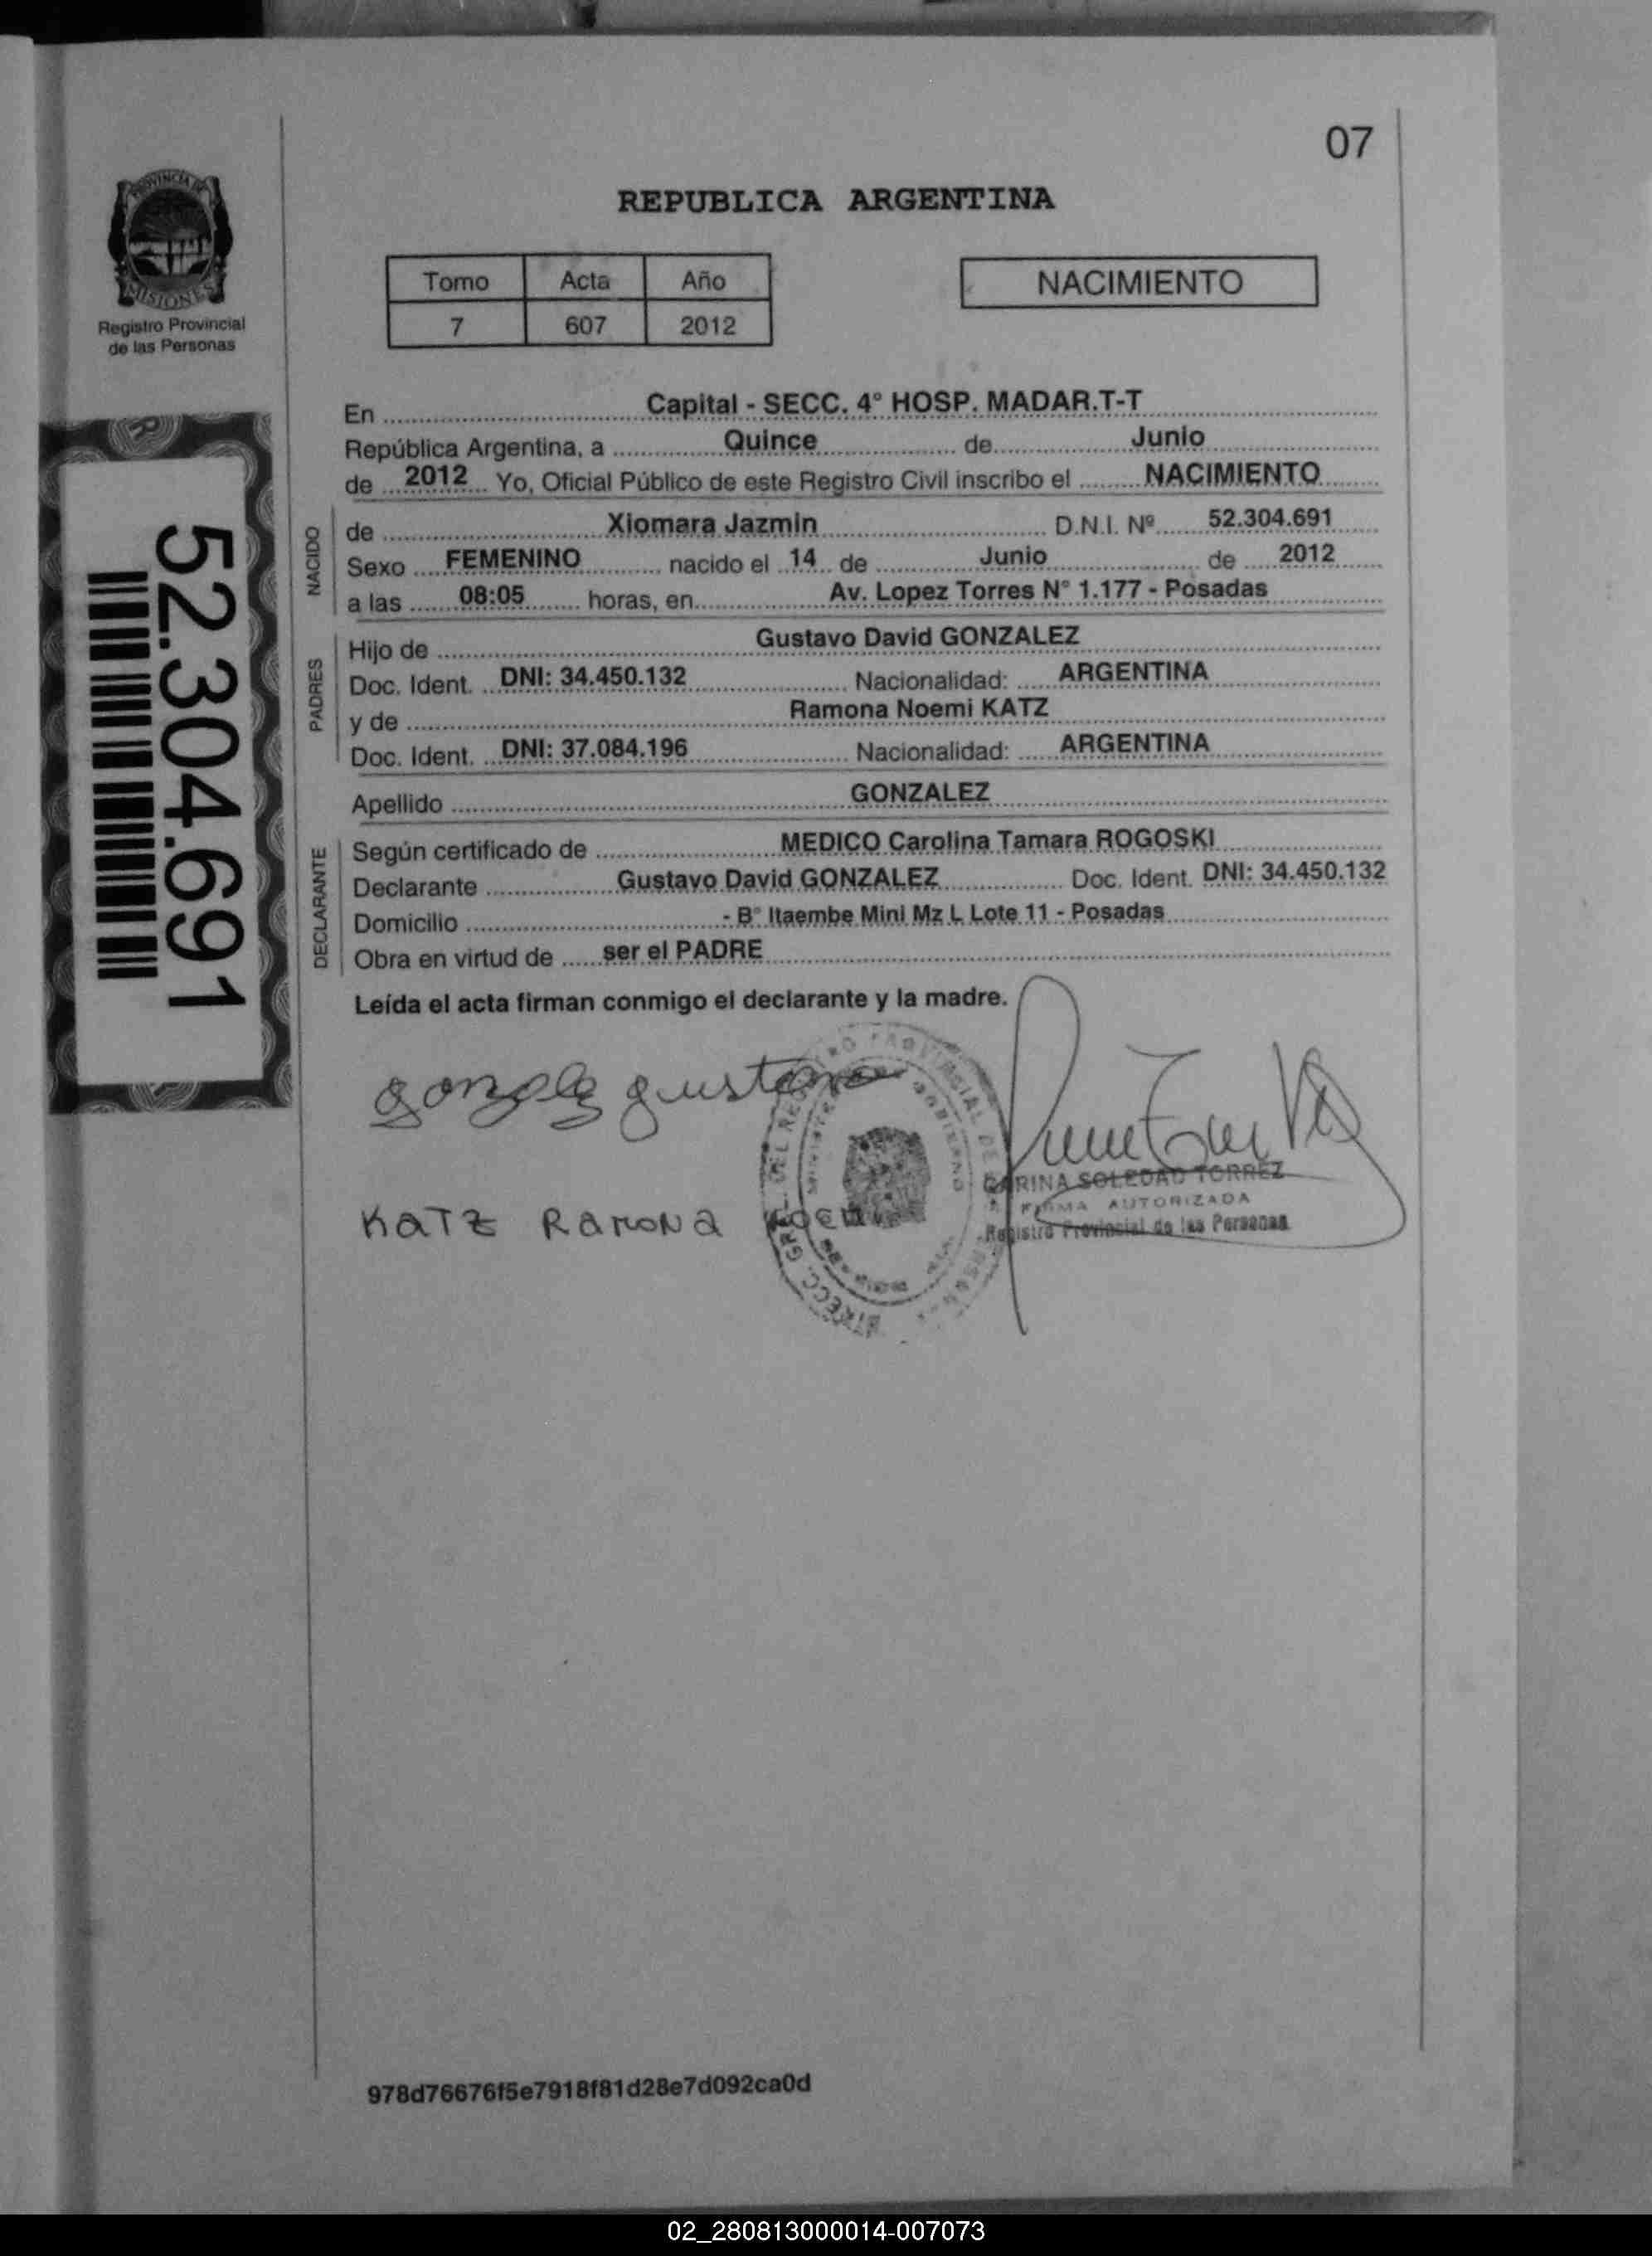 07
PROVINCIA DE
MISIONES
Registro Provincial
de las Personas
REPUBLICA ARGENTINA
Tomo Acta Año
7 607 2012
NACIMIENTO
52.304.691
En Capital - SECC. 4° HOSP. MADAR.T-T
República Argentina, a Quince de Junio
de 2012 Yo, Oficial Público de este Registro Civil inscribo el NACIMIENTO
NACIDO
de Xiomara Jazmin D.N.I. Nº 52.304.691
Sexo FEMENINO nacido el 14 de Junio de 2012
a las 08:05 horas, en Av. Lopez Torres N° 1.177 - Posadas
PADRES
Hijo de Gustavo David GONZALEZ
Doc. Ident. DNI: 34.450.132 Nacionalidad: ARGENTINA
y de Ramona Noemi KATZ
Doc. Ident. DNI: 37.084.196 Nacionalidad: ARGENTINA
Apellido GONZALEZ
DECLARANTE
Según certificado de MEDICO Carolina Tamara ROGOSKI
Declarante Gustavo David GONZALEZ Doc. Ident. DNI: 34.450.132
Domicilio - B° Itaembe Mini Mz L Lote 11 - Posadas
Obra en virtud de ser el PADRE
Leída el acta firman conmigo el declarante y la madre.
KATZ RAMONA
SOLEDAD TORREZ
FIRMA AUTORIZADA
Registro Provincial de las Personas
978d76676f5e7918f81d28e7d092ca0d
02_280813000014-007073